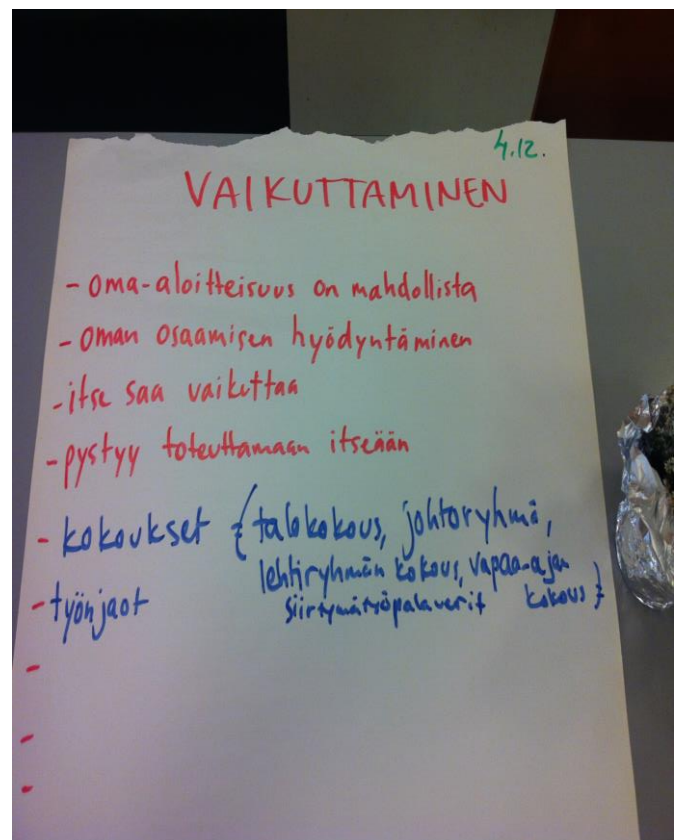 4.12.
VAIKUTTAMINEN
- oma-aloitteisuus on mahdollista
- oman osaamisen hyödyntäminen
- itse saa vaikuttaa
- pystyy toteuttamaan itseään
- kokoukset { talokokous, johtoryhmä,
lehtiryhmän kokous, vapaa-ajan
siirtymätyöpalaverit kokous }
- työnjaot
-
-
-